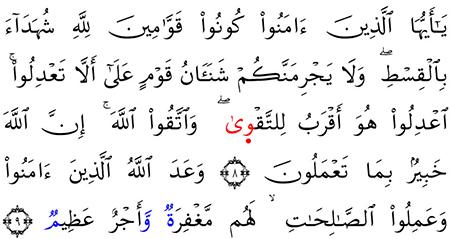 يَٰٓأَيُّهَا ٱلَّذِينَ ءَامَنُواْ كُونُواْ قَوَّٰمِينَ لِلَّهِ شُهَدَآءَ
بِٱلْقِسْطِۖ وَلَا يَجْرِمَنَّكُمْ شَنَـَٔانُ قَوْمٍ عَلَىٰٓ أَلَّا تَعْدِلُواْۚ
ٱعْدِلُواْ هُوَ أَقْرَبُ لِلتَّقْوىٰۖ وَٱتَّقُواْ ٱللَّهَۚ إِنَّ ٱللَّهَ
خَبِيرُۢ بِمَا تَعْمَلُونَ ٨ وَعَدَ ٱللَّهُ ٱلَّذِينَ ءَامَنُواْ
وَعَمِلُواْ ٱلصَّٰلِحَٰتِ ۙ لَهُم مَّغْفِرَةٌ وَّأَجْرٌ عَظِيمٌ ٩